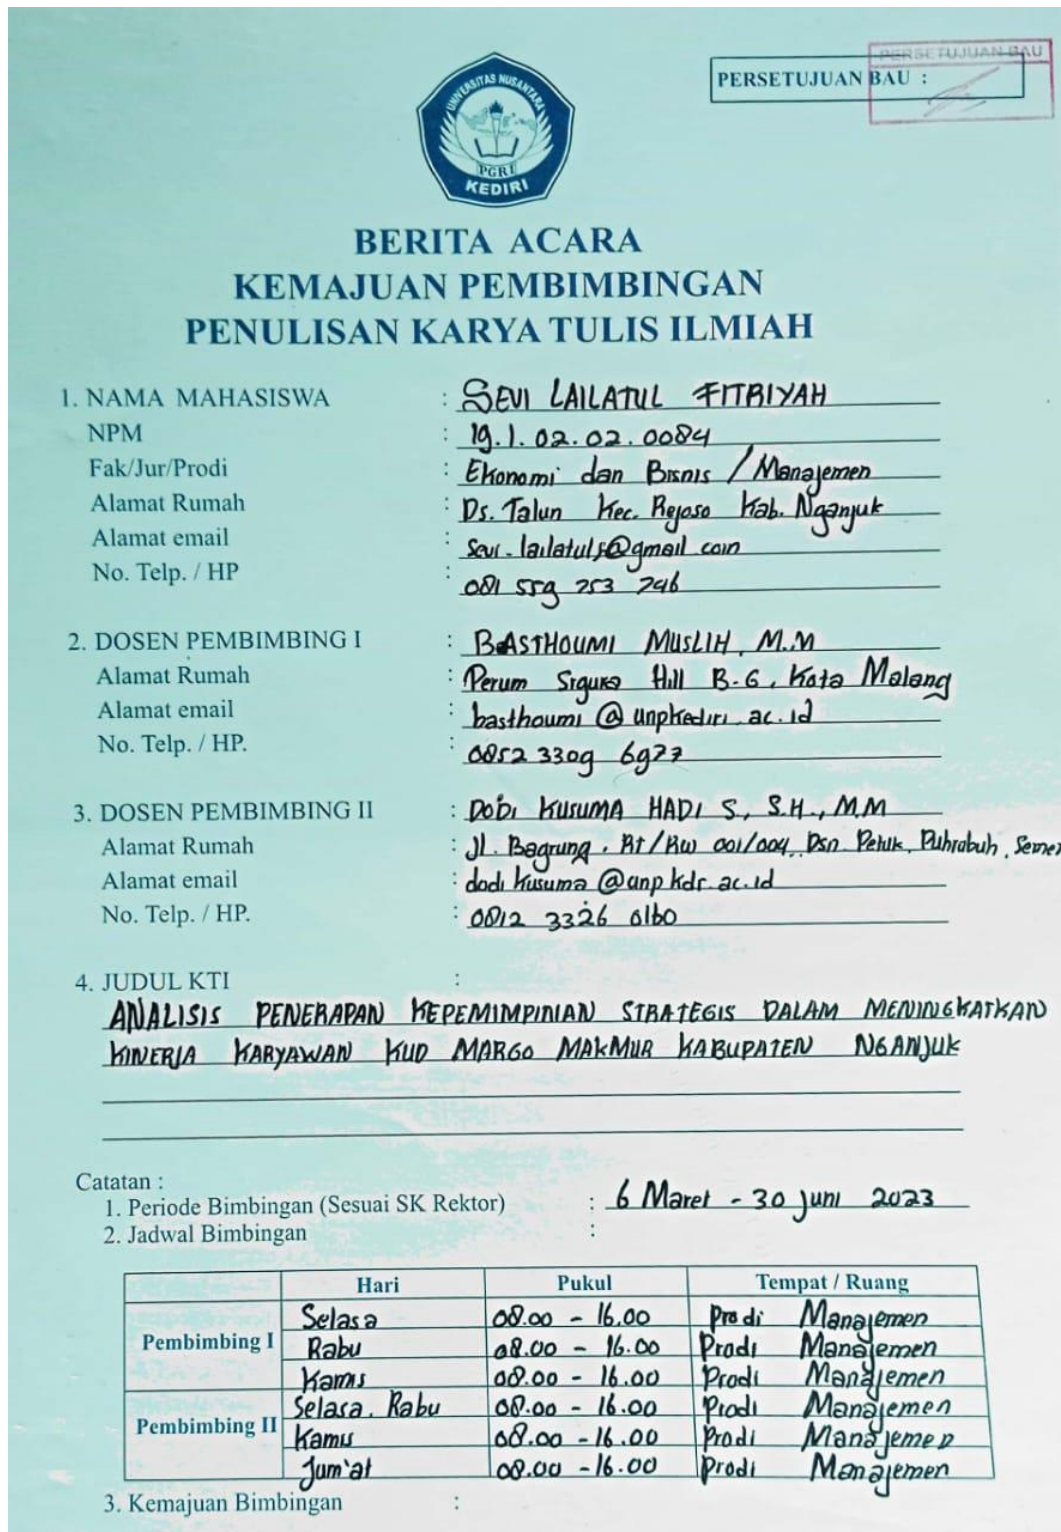 PERSETUJUAN BAU
PERSETUJUAN BAU :
UNIVERSITAS NUSANTARA
PGRI
KEDIRI
BERITA ACARA
KEMAJUAN PEMBIMBINGAN
PENULISAN KARYA TULIS ILMIAH
1. NAMA MAHASISWA : SEVI LAILATUL FITRIYAH
NPM : 19.1.02.02.0084
Fak/Jur/Prodi : Ekonomi dan Bisnis / Manajemen
Alamat Rumah : Ds. Talun Kec. Rejoso Kab. Nganjuk
Alamat email : sevi.lailatulf@gmail.com
No. Telp. / HP : 081 559 253 746
2. DOSEN PEMBIMBING I : BASTHOUMI MUSLIH, M.M
Alamat Rumah : Perum Sigura Hill B-6, Kota Malang
Alamat email : basthoumi@unpkediri.ac.id
No. Telp. / HP. : 0852 3309 6977
3. DOSEN PEMBIMBING II : DODI KUSUMA HADI S., S.H., M.M
Alamat Rumah : Jl. Bagrung, Rt/Rw 001/004, Dsn. Petuk, Puhrubuh, Semen
Alamat email : dodikusuma@unpkdr.ac.id
No. Telp. / HP. : 0812 3326 0160
4. JUDUL KTI :
ANALISIS PENERAPAN KEPEMIMPINIAN STRATEGIS DALAM MENINGKATKAN
KINERJA KARYAWAN KUD MARGO MAKMUR KABUPATEN NGANJUK
Catatan :
1. Periode Bimbingan (Sesuai SK Rektor) : 6 Maret - 30 Juni 2023
2. Jadwal Bimbingan :
Hari Pukul Tempat / Ruang
Pembimbing I Selasa 08.00 - 16.00 Prodi Manajemen
Rabu 08.00 - 16.00 Prodi Manajemen
Kamis 08.00 - 16.00 Prodi Manajemen
Pembimbing II Selasa, Rabu 08.00 - 16.00 Prodi Manajemen
Kamis 08.00 - 16.00 Prodi Manajemen
Jum'at 08.00 - 16.00 Prodi Manajemen
3. Kemajuan Bimbingan :